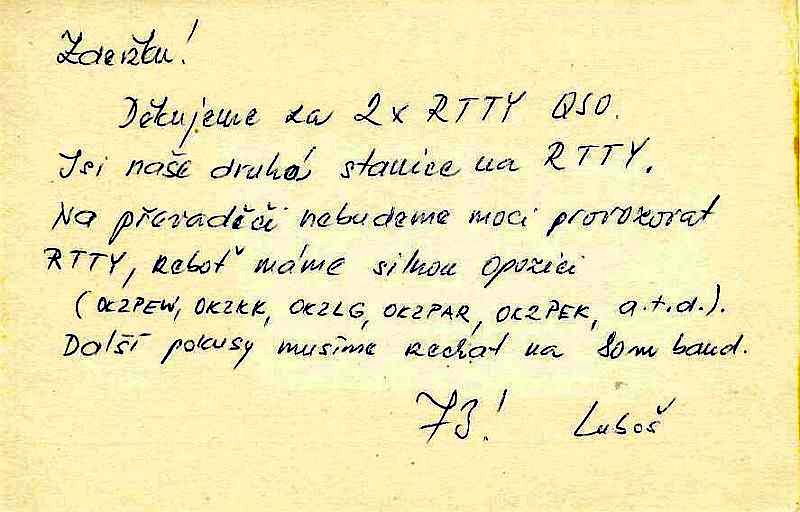 Zdeňku!
Děkujeme za 2x RTTY QSO.
Jsi naše druhá stanice na RTTY.
Na převaděči nebudeme moci provozovat
RTTY, neboť máme silnou opozici
(OK2PEW, OK2KK, OK2LG, OK2PAR, OK2PEK, a.t.d.).
Další pokusy musíme nechat na 80m band.
73! Luboš